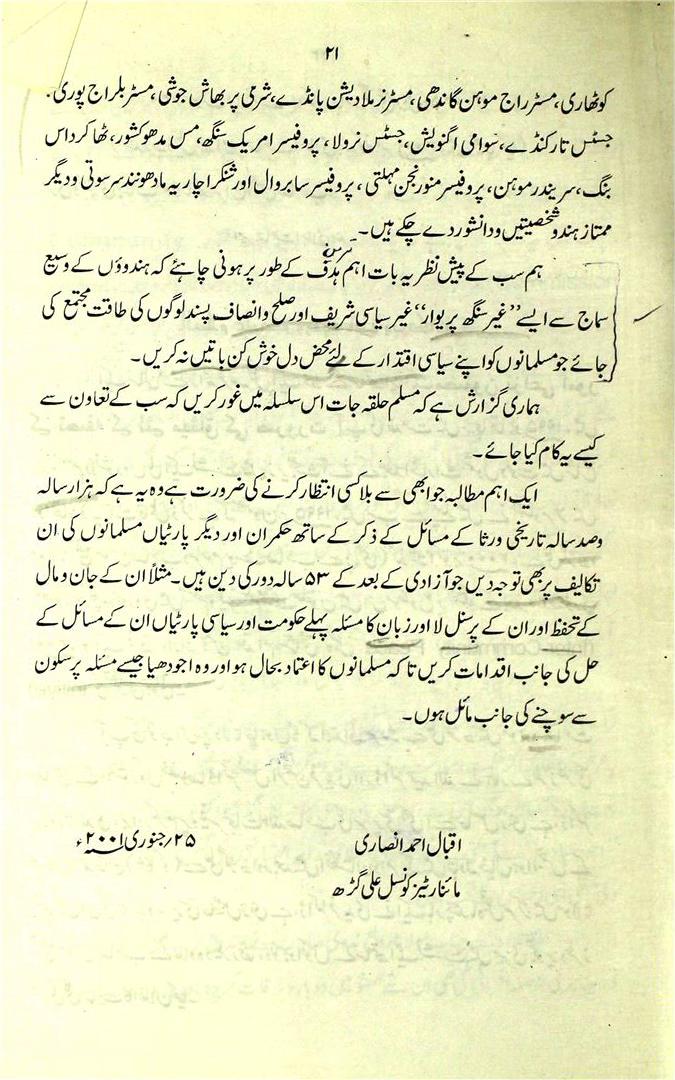 ۲۱
کوٹھاری، مسٹر راج موہن گاندھی، مسٹر نرملا دیشن پانڈے، شرمی پربھاش جوشی، مسٹر بلراج پوری.
جسٹس تارکنڈے، سوامی اگنویش، جسٹس نرولا، پروفیسر امریک سنگھ، مس مدھو کشور، ٹھاکر داس
بنگ، سریندر موہن، پروفیسر منورنجن مہلتی، پروفیسر سابروال اور شنکراچاریہ مادھونند سرسوتی و دیگر
ممتاز ہندو شخصیتیں و دانشور دے چکے ہیں۔
ہم سب کے پیش نظر یہ بات اہم ہدف کے طور پر ہونی چاہئے کہ ہندوؤں کے وسیع
سماج سے ایسے "غیر سنگھ پریوار" غیر سیاسی شریف اور صلح و انصاف پسند لوگوں کی طاقت مجتمع کی
جائے جو مسلمانوں کو اپنے سیاسی اقتدار کے لئے محض دل خوش کن باتیں نہ کریں۔
ہماری گزارش ہے کہ مسلم حلقہ جات اس سلسلہ میں غور کریں کہ سب کے تعاون سے
کیسے یہ کام کیا جائے۔
ایک اہم مطالبہ جو ابھی سے بلا کسی انتظار کرنے کی ضرورت ہے وہ یہ ہے کہ ہزار سالہ
وصد سالہ تاریخی ورثا کے مسائل کے ذکر کے ساتھ حکمران اور دیگر پارٹیاں مسلمانوں کی ان
تکالیف پر بھی توجہ دیں جو آزادی کے بعد کے ۵۳ سالہ دور کی دین ہیں۔ مثلاً ان کے جان و مال
کے تحفظ اور ان کے پرسنل لا اور زبان کا مسئلہ پہلے حکومت اور سیاسی پارٹیاں ان کے مسائل کے
حل کی جانب اقدامات کریں تا کہ مسلمانوں کا اعتماد بحال ہو اور وہ اجودھیا جیسے مسئلہ پر سکون
سے سوچنے کی جانب مائل ہوں۔
اقبال احمد انصاری
۲۵/ جنوری ۲۰۰۱ء
مائنارٹیز کونسل علی گڑھ